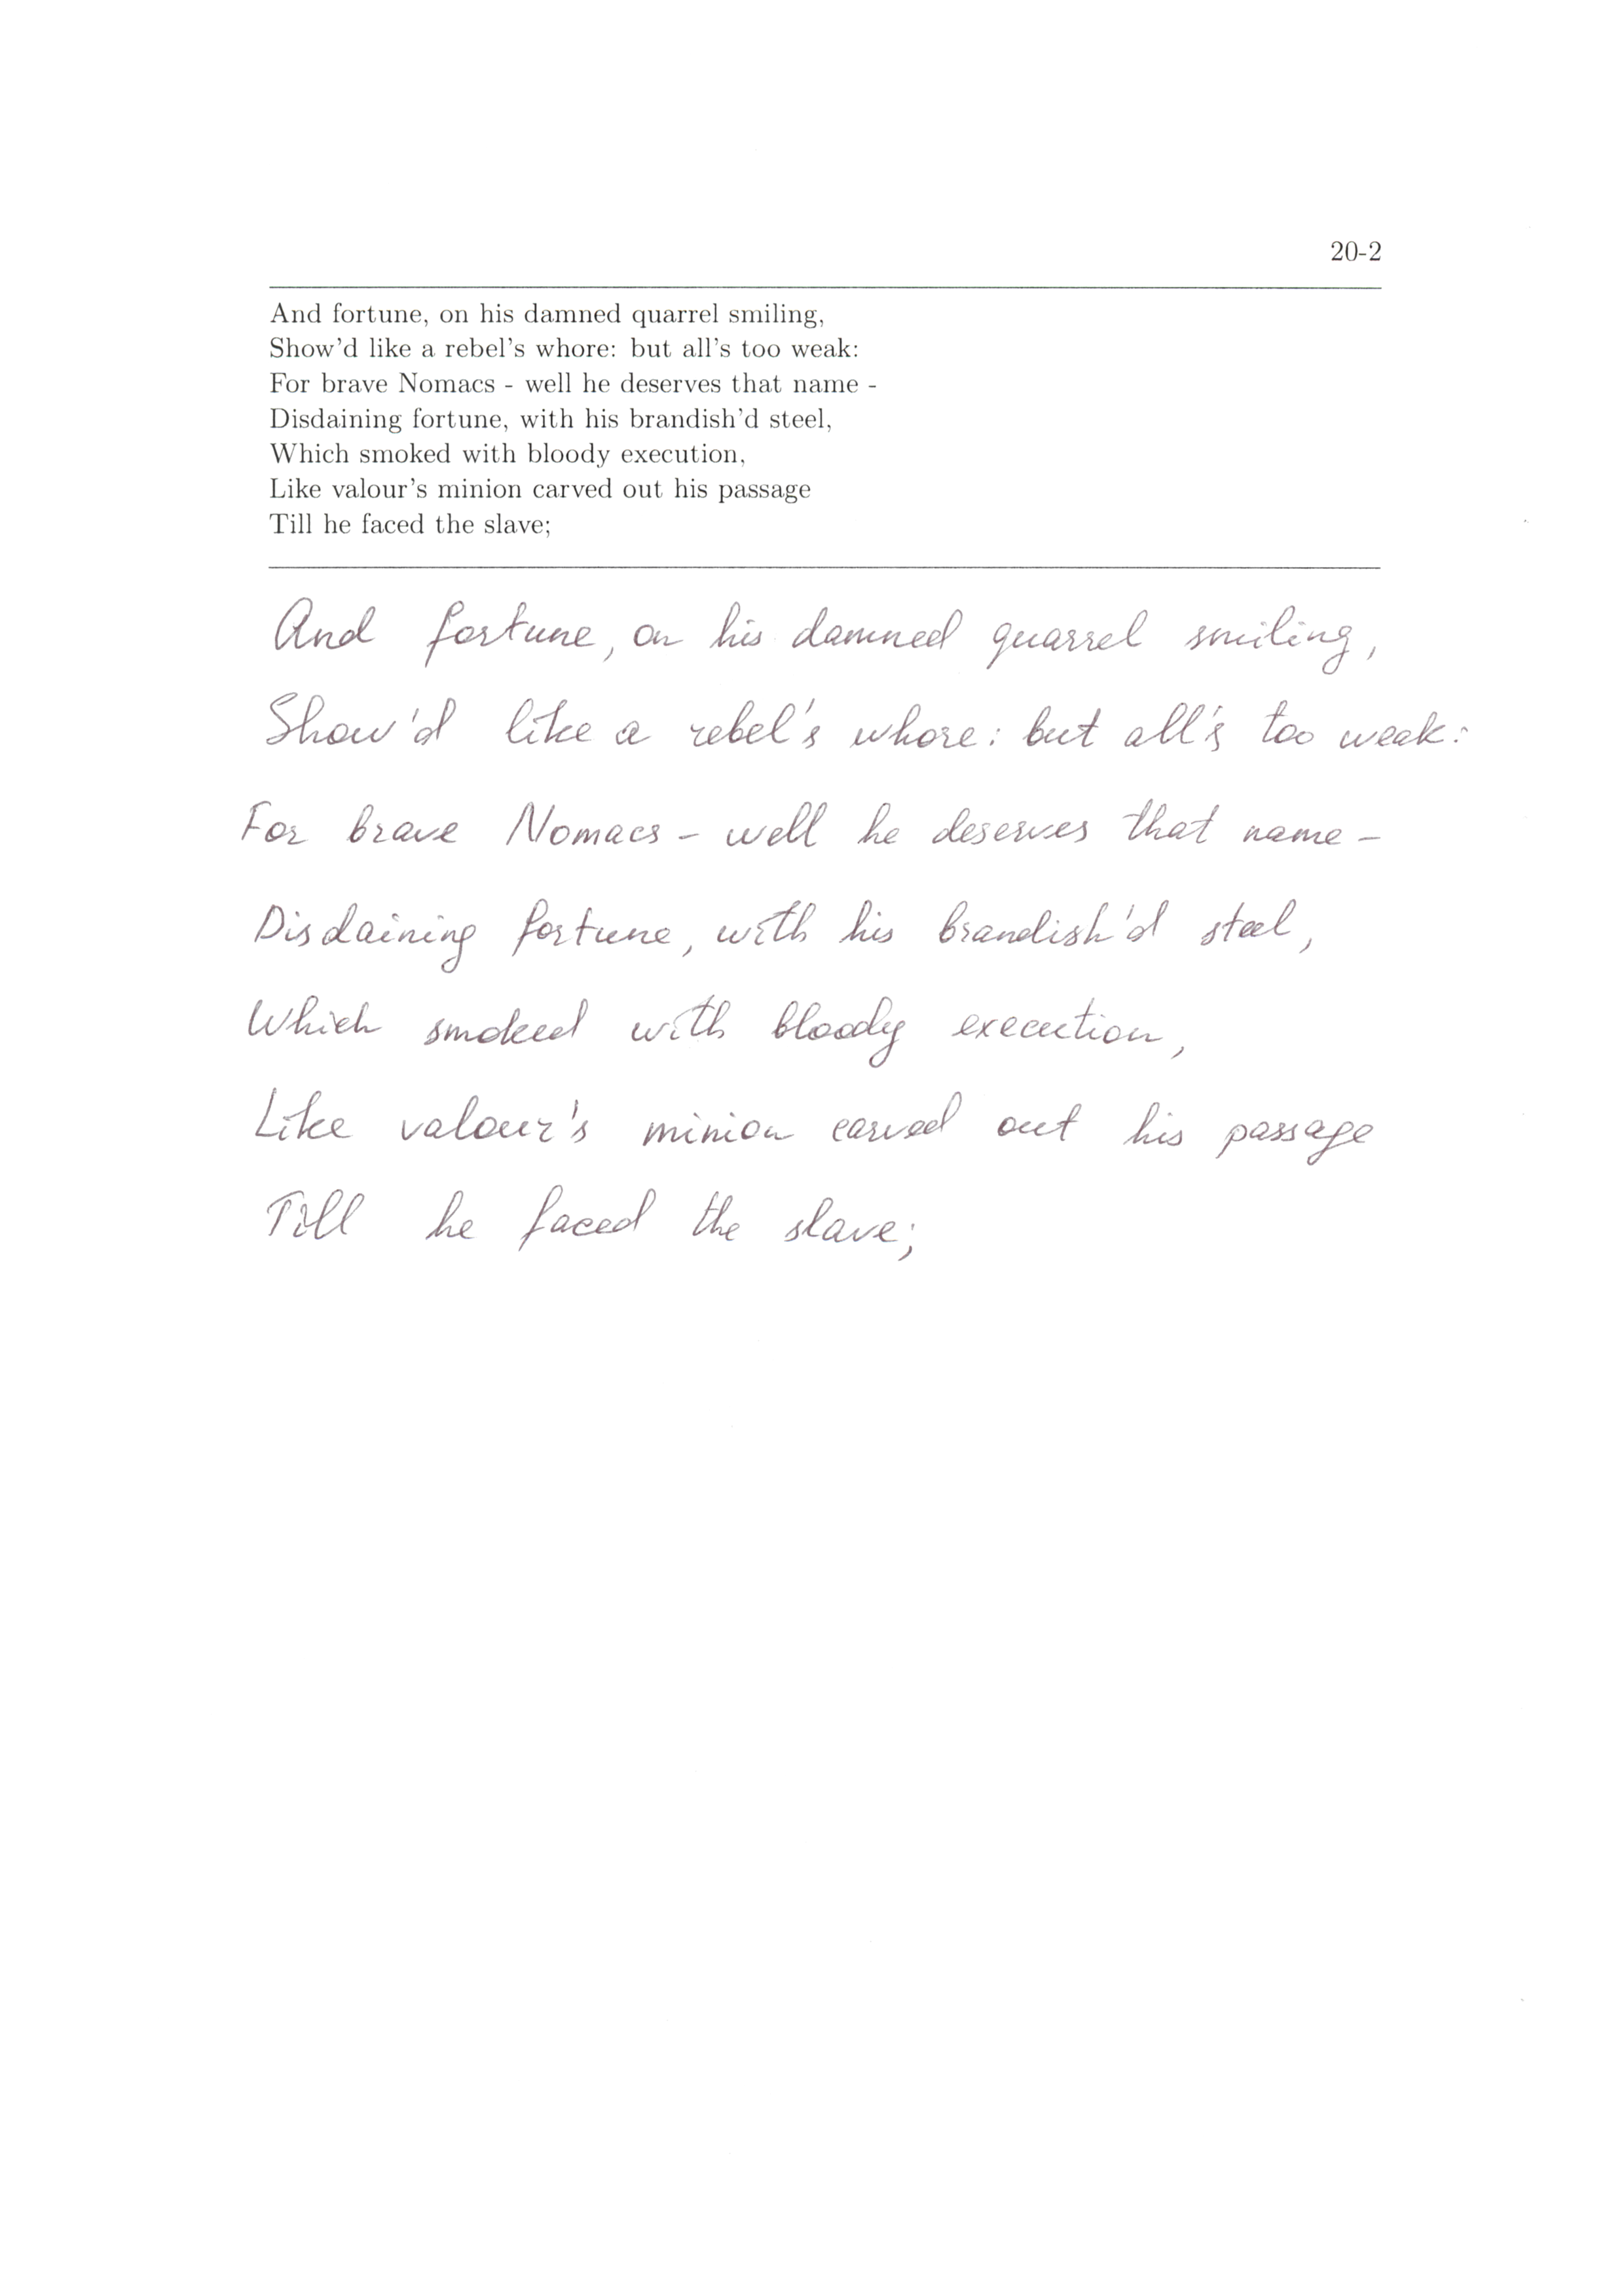 20-2
And fortune, on his damned quarrel smiling,
Show'd like a rebel's whore: but all's too weak:
For brave Nomacs - well he deserves that name -
Disdaining fortune, with his brandish'd steel,
Which smoked with bloody execution,
Like valour's minion carved out his passage
Till he faced the slave;
And fortune, on his damned quarrel smiling,
Show'd like a rebel's whore: but all's too weak:
For brave Nomacs - well he deserves that name -
Disdaining fortune, with his brandish'd steel,
Which smoked with bloody execution,
Like valour's minion carved out his passage
Till he faced the slave;